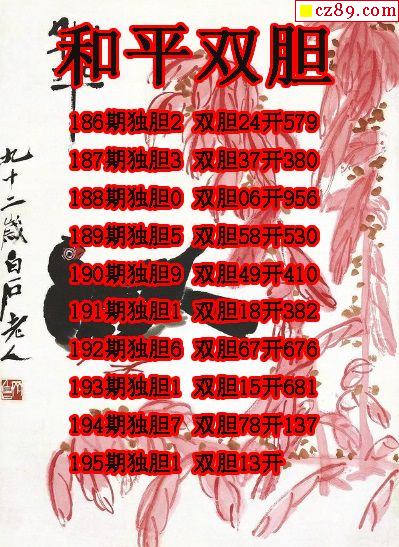 cz89.com
和平双胆
186期独胆2 双胆24开579
187期独胆3 双胆37开380
188期独胆0 双胆06开956
189期独胆5 双胆58开530
190期独胆9 双胆49开410
191期独胆1 双胆18开382
192期独胆6 双胆67开676
193期独胆1 双胆15开681
194期独胆7 双胆78开137
195期独胆1 双胆13开
九十二歲白石老人